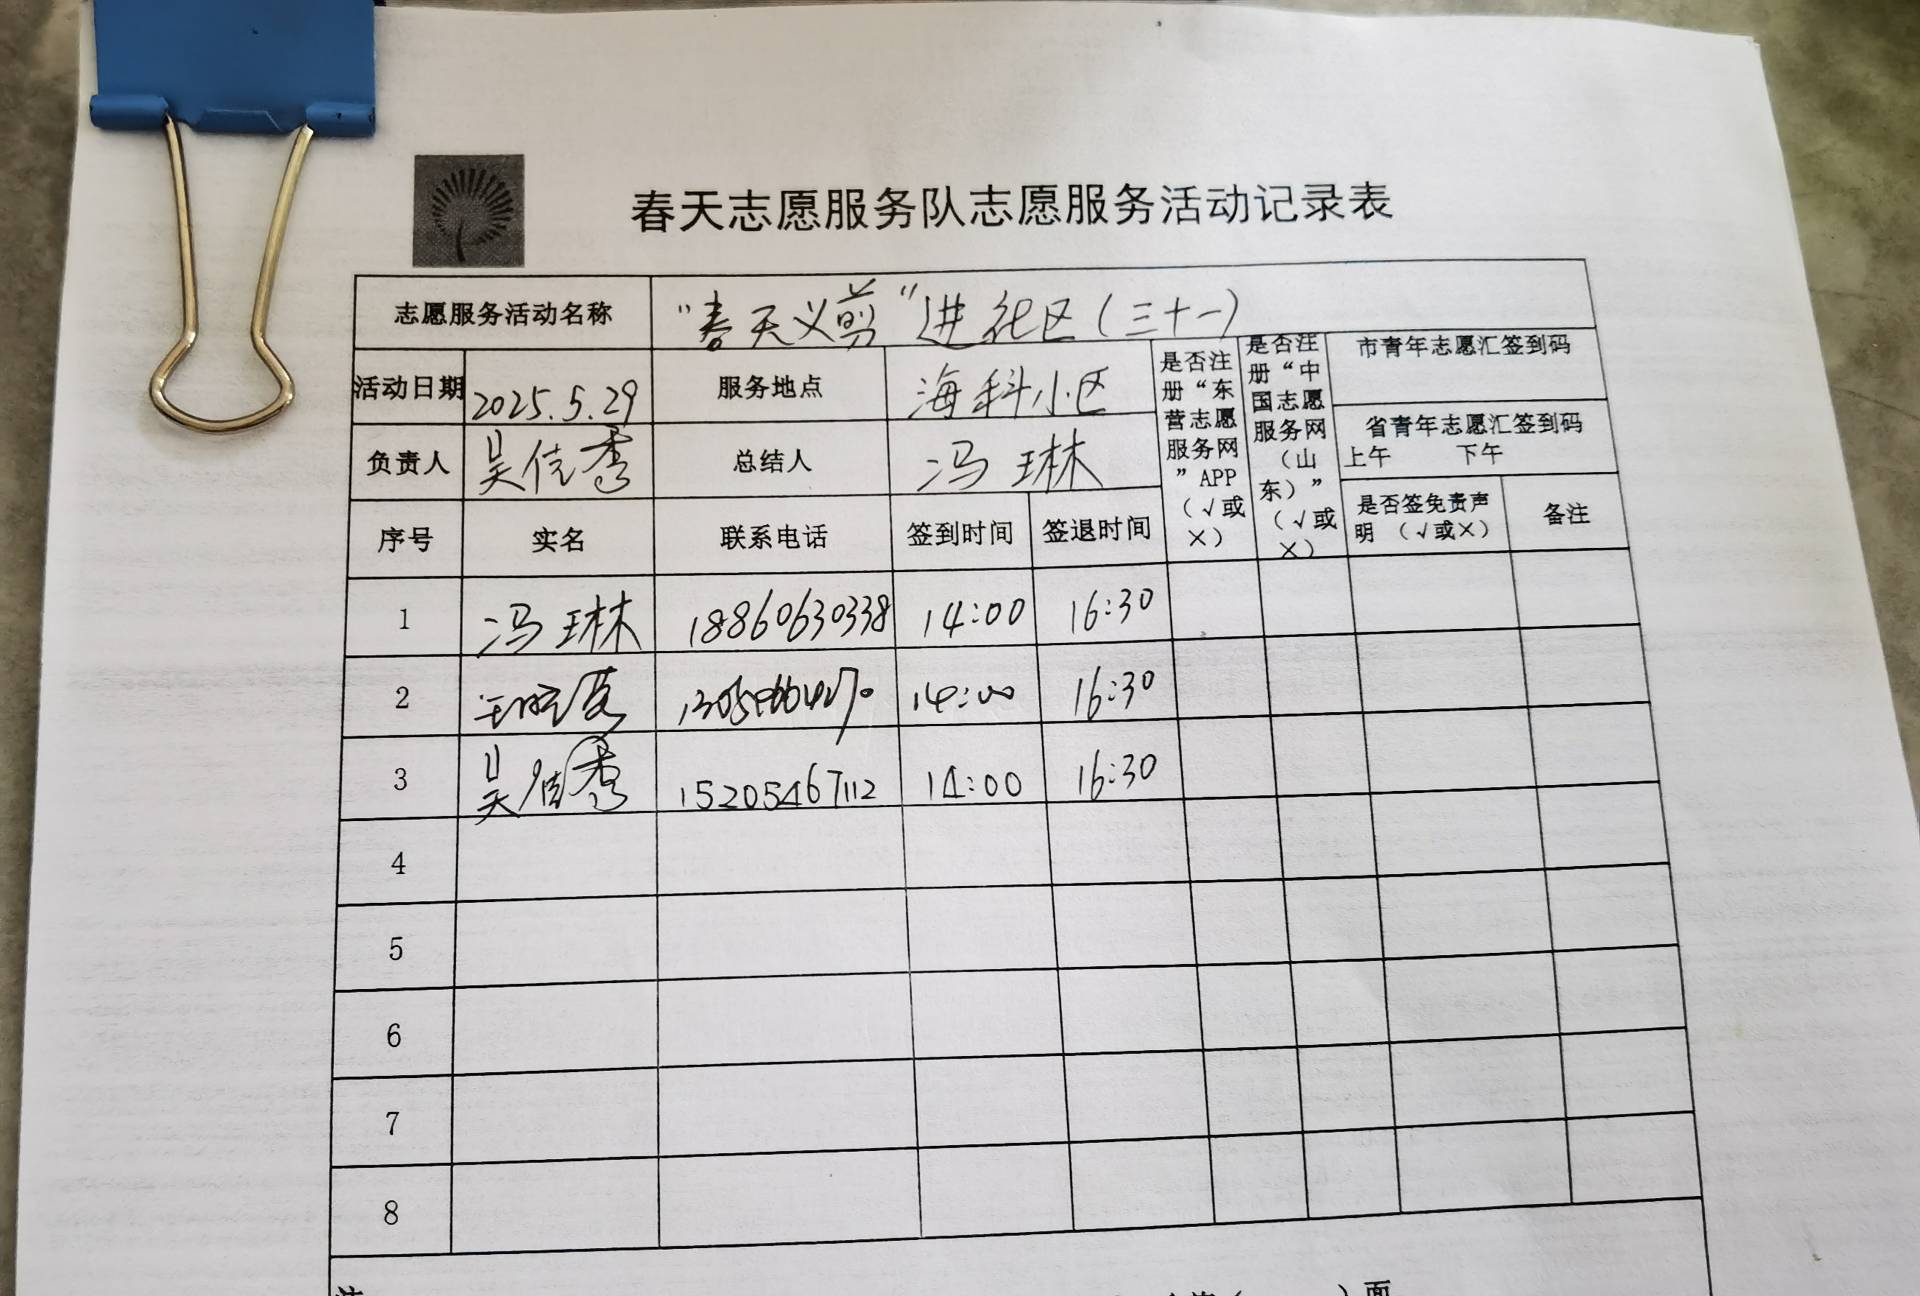 春天志愿服务队志愿服务活动记录表
志愿服务活动名称 “春天义剪”进社区(三十一)
活动日期 2025.5.29 服务地点 海科小区
是否注册“东营志愿服务网”APP(√或×)
是否注册“中国志愿服务网(山东)”(√或×)
市青年志愿汇签到码
省青年志愿汇签到码
上午 下午
负责人 吴佳秀 总结人 冯琳
是否签免责声明 (√或×) 备注
序号 实名 联系电话 签到时间 签退时间
1 冯琳 18860630338 14:00 16:30
2 14:00 16:30
3 吴佳秀 15205467112 14:00 16:30
4
5
6
7
8